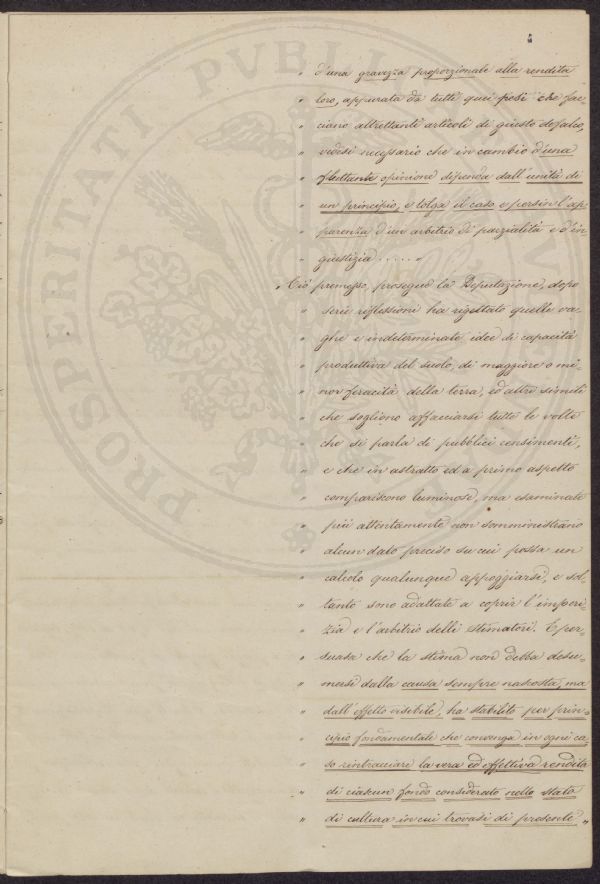 " d'una gravezza proporzionale alla rendita
" loro, appurata da tutti quei pesi che fac,
" ciano altrettanti articoli di giusto defalco,
" videsi necessario che in cambio d'una
" fluttante opinione dipenda dall'unità di
" un principio, e tolga il caso e persin l'ap
" parenza d'un arbitrio di parzialità e d'in
" giustizia ...... "
" Ciò premesso, prosegue la Deputazione, dopo
" serie riflessioni ha rigettato quelle va-
" ghe e indeterminate idee di capacità
" produttiva del suolo, di maggiore o mi-
" nor feracità della terra, ed altre simili
" che sogliono affacciarsi tutte le volte
" che si parla di pubblici censimenti,
" e che in astratto ed a primo aspetto
" compariscono luminose, ma esaminate
" più attentamente non somministrano
" alcun dato preciso su cui possa un
" calcolo qualunque appoggiarsi, e sol-
" tanto sono adattate a coprir l'imperi-
" zia e l'arbitrio delli stimatori. E per-
" suasa che la stima non debba desu-
" mersi dalla causa sempre nascosta, ma
" dall'effetto visibile, ha stabilito per prin-
" cipio fondamentale che convenga in ogni ca-
" so rintracciare la vera ed effettiva rendita
" di ciascun fondo considerato nello stato
" di cultura in cui trovasi di presente "
PROSPERITATI PVBLI